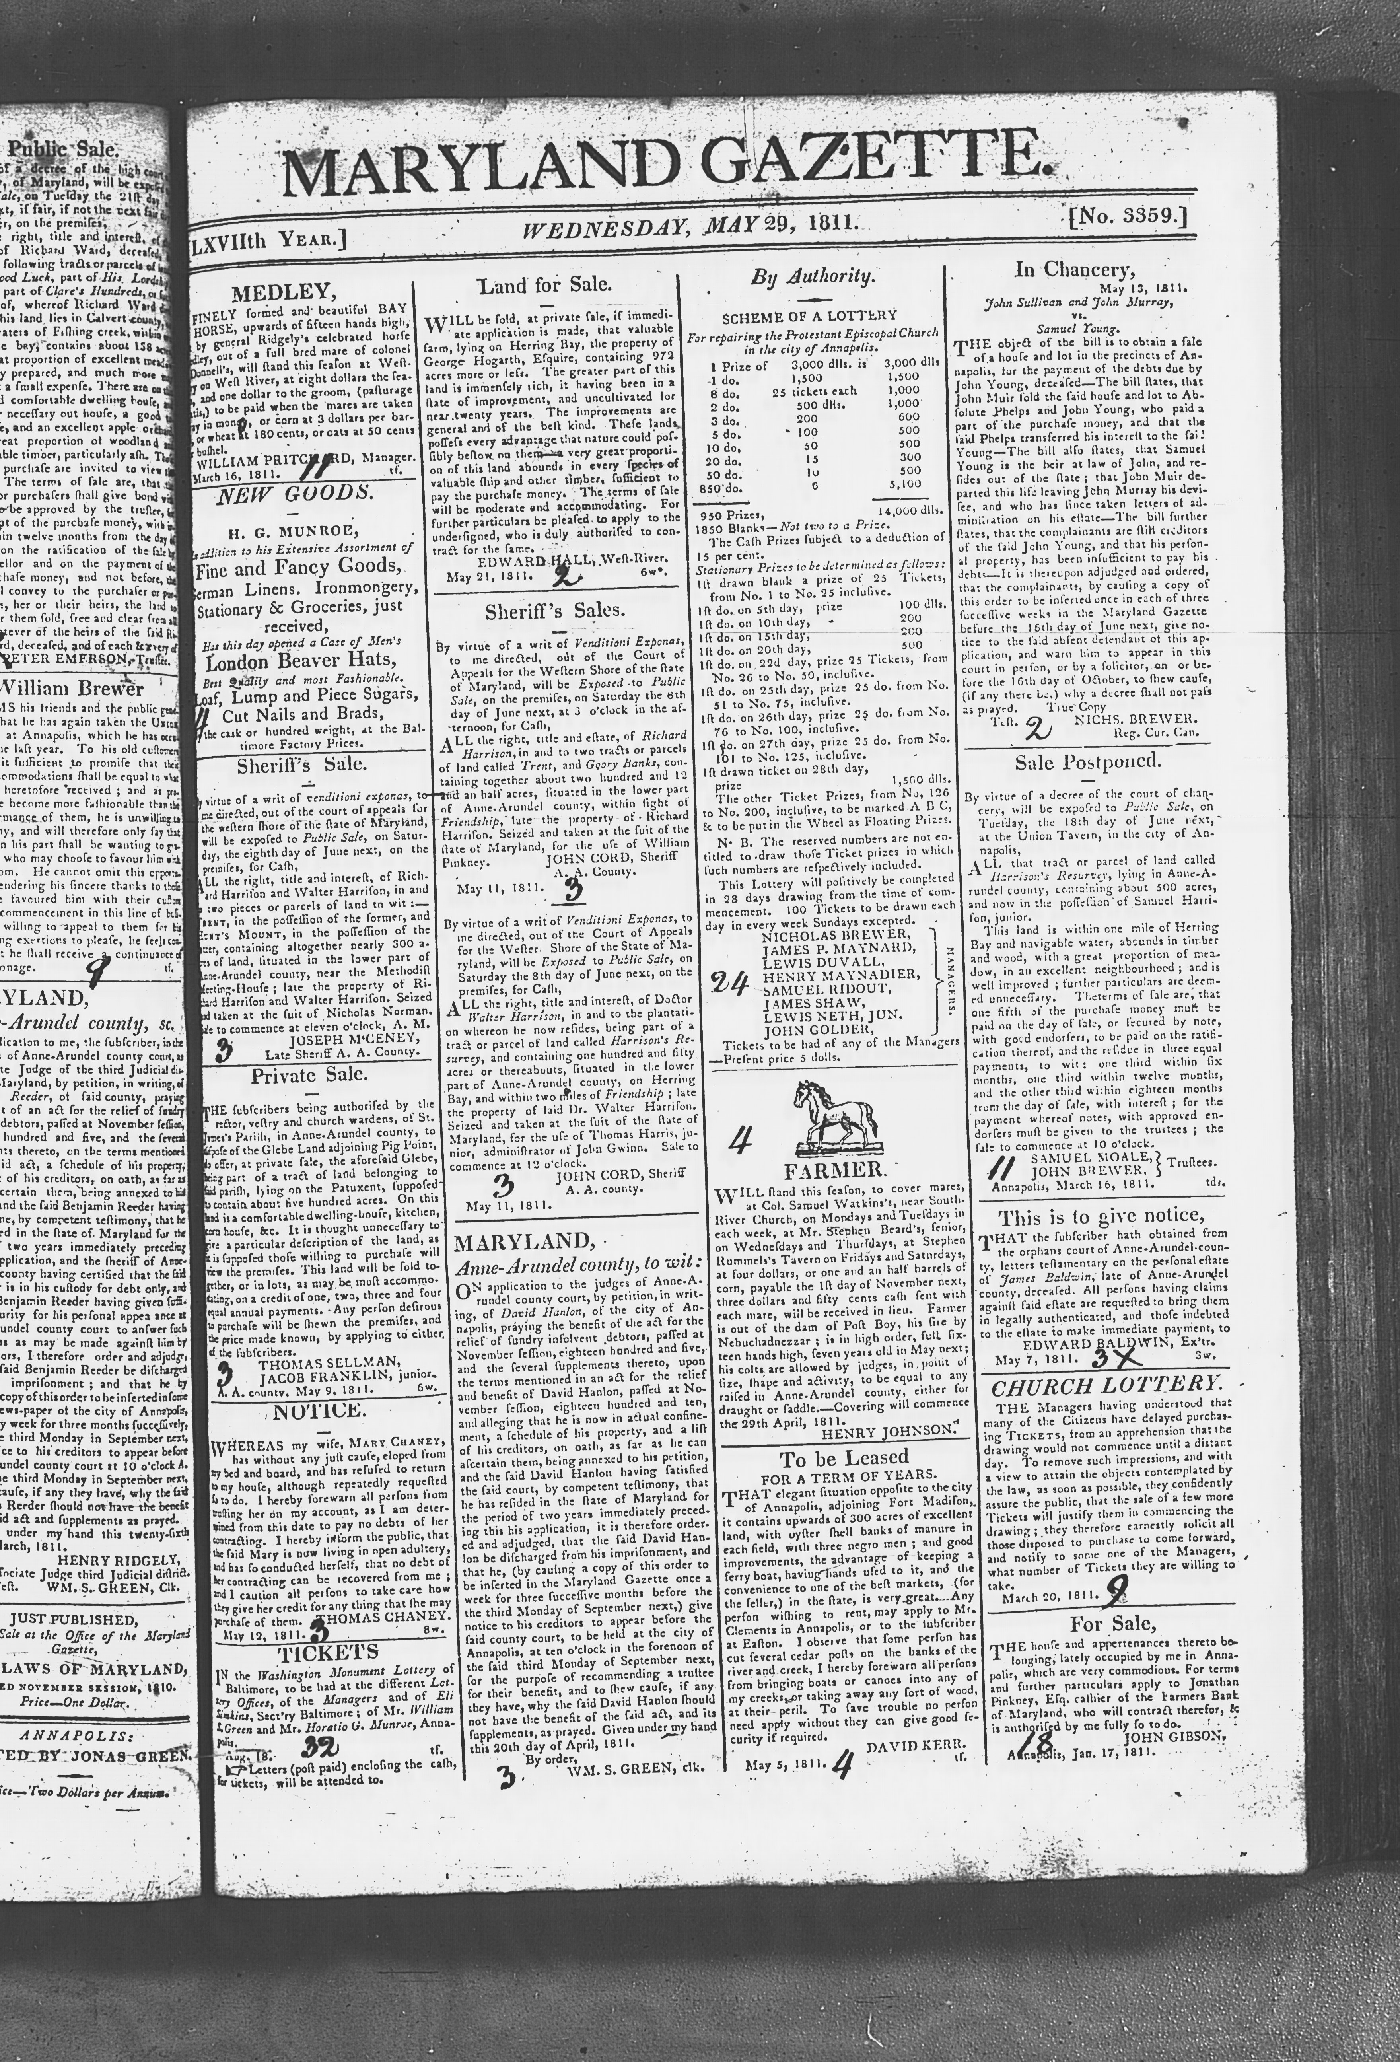 Public Sale.
of a decree of the high court
of Maryland, will be
on Tuesday the 21st day
if fair, if not the next fair
on the premises,
right, title and interest, of
of Richard Ward, deceased,
following tracts or parcels of
Good Luck, part of His Lord
part of Clare's Hundreds,
of, whereof Richard
his land lies in Calvert county,
waters of Fishing creek, within
bay, contains about 158
proportion of excellent
prepared, and much more
a small expense. There are on
comfortable dwelling house,
necessary out house, a good
and an excellent apple
great proportion of woodland
able timber, particularly ash.
purchase are invited to view
The terms of sale are, that
or purchasers shall give bond
be approved by the trustee,
of the purchase money, with
in twelve months from the day
on the ratification of the sale by
and on the payment of the
chase money, and not before, the
convey to the purchaser or
her or their heirs, the land
them sold, free and clear from
of the heirs of the said
deceased, and of each & every of
PETER EMERSON, Trustee.
William Brewer
his friends and the public
that he has again taken the Union
at Annapolis, which he has
last year. To his old customers
sufficient to promise that the
accommodations shall be equal to what
heretofore received; and as
become more fashionable than the
of them, he is unwilling to
and will therefore only say that
on his part shall be wanting to
who may choose to favour him with
He cannot omit this
rendering his sincere thanks to those
favoured him with their
commencement in this line of
willing to appeal to them for his
exertions to please, he feels
he shall receive a continuance of
9 tf.
MARYLAND,
Anne-Arundel county, sc.
application to me, the subscriber, in the
of Anne-Arundel county court, as
Judge of the third Judicial
Maryland, by petition, in writing, of
Reeder, of said county, praying
of an act for the relief of sundry
debtors, passed at November session,
hundred and five, and the several
thereto, on the terms mentioned
said act, a schedule of his property,
of his creditors, on oath, as far as
certain them, being annexed to his
and the said Benjamin Reeder having
by competent testimony, that he
in the state of Maryland for the
two years immediately preceding
application, and the sheriff of Anne-
county having certified that the said
is in his custody for debt only, and
Benjamin Reeder having given
security for his personal appearance at
Arundel county court to answer such
as may be made against him by
I therefore order and adjudge,
said Benjamin Reeder be discharged
imprisonment; and that he by
copy of this order to be inserted in some
news-paper of the city of Annapolis,
week for three months successively,
third Monday in September next,
notice to his creditors to appear before
Arundel county court at 10 o'clock A.
the third Monday in September next,
cause, if any they have, why the said
Reeder should not have the benefit
said act and supplements as prayed.
under my hand this twenty-sixth
March, 1811.
HENRY RIDGELY,
Associate Judge third Judicial district.
Test. WM. S. GREEN, Clk.
JUST PUBLISHED,
Sale at the Office of the Maryland
Gazette,
LAWS OF MARYLAND,
NOVEMBER SESSION, 1810.
Price—One Dollar.
ANNAPOLIS:
PRINTED BY JONAS GREEN.
Price—Two Dollars per Annum.
MARYLAND GAZETTE.
LXVIIth YEAR.] WEDNESDAY, MAY 29, 1811. [No. 3359.]
MEDLEY,
FINELY formed and beautiful BAY
HORSE, upwards of fifteen hands high,
by general Ridgely's celebrated horse
out of a full bred mare of colonel
will stand this season at West-
on West River, at eight dollars the sea-
and one dollar to the groom, (pasturage
to be paid when the mares are taken
in money, or corn at 3 dollars per bar-
or wheat at 180 cents, or oats at 50 cents
bushel.
WILLIAM PRITCHARD, Manager.
March 16, 1811. 11 tf.
NEW GOODS.
H. G. MUNROE,
In addition to his Extensive Assortment of
Fine and Fancy Goods,
German Linens, Ironmongery,
Stationary & Groceries, just
received,
Has this day opened a Case of Men's
London Beaver Hats,
Best Quality and most Fashionable.
Loaf, Lump and Piece Sugars,
Cut Nails and Brads,
the cask or hundred weight, at the Bal-
timore Factory Prices.
Sheriff's Sale.
By virtue of a writ of venditioni exponas, to
me directed, out of the court of appeals for
the western shore of the state of Maryland,
will be exposed to Public Sale, on Satur-
day, the eighth day of June next, on the
premises, for Cash,
ALL the right, title and interest, of Rich-
ard Harrison and Walter Harrison, in and
to two pieces or parcels of land to wit:—
TRENT, in the possession of the former, and
MOUNT, in the possession of the
latter, containing altogether nearly 300 a-
cres of land, situated in the lower part of
Anne-Arundel county, near the Methodist
Meeting-House; late the property of Ri-
chard Harrison and Walter Harrison. Seized
and taken at the suit of Nicholas Norman.
Sale to commence at eleven o'clock, A. M.
JOSEPH M'CENEY,
3 Late Sheriff A. A. County.
Private Sale.
THE subscribers being authorised by the
rector, vestry and church wardens, of St.
James's Parish, in Anne-Arundel county, to
dispose of the Glebe Land adjoining Pig Point,
do offer, at private sale, the aforesaid Glebe,
being part of a tract of land belonging to
said parish, lying on the Patuxent, supposed
to contain about five hundred acres. On this
land is a comfortable dwelling-house, kitchen,
corn house, &c. It is thought unnecessary to
give a particular description of the land, as
it is supposed those willing to purchase will
view the premises. This land will be sold to-
gether, or in lots, as may be most accommo-
dating, on a credit of one, two, three and four
equal annual payments. Any person desirous
to purchase will be shewn the premises, and
the price made known, by applying to either
of the subscribers.
THOMAS SELLMAN,
3 JACOB FRANKLIN, junior.
A. A. county, May 9, 1811. 6w.
NOTICE.
WHEREAS my wife, MARY CHANEY,
has without any just cause, eloped from
my bed and board, and has refused to return
to my house, although repeatedly requested
so to do. I hereby forewarn all persons from
trusting her on my account, as I am deter-
mined from this date to pay no debts of her
contracting. I hereby inform the public, that
the said Mary is now living in open adultery,
and has so conducted herself, that no debt of
her contracting can be recovered from me;
and I caution all persons to take care how
they give her credit for any thing that she may
purchase of them. THOMAS CHANEY.
May 12, 1811. 3 8w.
TICKETS
IN the Washington Monument Lottery of
Baltimore, to be had at the different Lot-
tery Offices, of the Managers and of Eli
Simkins, Sect'ry Baltimore; of Mr. William
S. Green and Mr. Horatio G. Munroe, Anna-
polis.
Aug. 18. 32 tf.
Letters (post paid) enclosing the cash,
for tickets, will be attended to.
Land for Sale.
WILL be sold, at private sale, if immedi-
ate application is made, that valuable
farm, lying on Herring Bay, the property of
George Hogarth, Esquire, containing 972
acres more or less. The greater part of this
land is immensely rich, it having been in a
state of improvement, and uncultivated for
near twenty years. The improvements are
general and of the best kind. These lands
possess every advantage that nature could pos-
sibly bestow on them—a very great proporti-
on of this land abounds in every species of
valuable ship and other timber, sufficient to
pay the purchase money. The terms of sale
will be moderate and accommodating. For
further particulars be pleased to apply to the
undersigned, who is duly authorised to con-
tract for the same.
EDWARD HALL, West-River.
May 21, 1811. 2 6w*.
Sheriff's Sales.
By virtue of a writ of Venditioni Exponas,
to me directed, out of the Court of
Appeals for the Western Shore of the state
of Maryland, will be Exposed to Public
Sale, on the premises, on Saturday the 8th
day of June next, at 3 o'clock in the af-
ternoon, for Cash,
ALL the right, title and estate, of Richard
Harrison, in and to two tracts or parcels
of land called Trent, and Gory Banks, con-
taining together about two hundred and 12
and an half acres, situated in the lower part
of Anne-Arundel county, within sight of
Friendship, late the property of Richard
Harrison. Seized and taken at the suit of the
state of Maryland, for the use of William
Pinkney. JOHN CORD, Sheriff
A. A. County.
May 11, 1811. 3
By virtue of a writ of Venditioni Exponas, to
me directed, out of the Court of Appeals
for the Wester. Shore of the State of Ma-
ryland, will be Exposed to Public Sale, on
Saturday the 8th day of June next, on the
premises, for Cash,
ALL the right, title and interest, of Doctor
Walter Harrison, in and to the plantati-
on whereon he now resides, being part of a
tract or parcel of land called Harrison's Re-
survey, and containing one hundred and fifty
acres or thereabouts, situated in the lower
part of Anne-Arundel county, on Herring
Bay, and within two miles of Friendship; late
the property of said Dr. Walter Harrison.
Seized and taken at the suit of the state of
Maryland, for the use of Thomas Harris, ju-
nior, administrator of John Gwinn. Sale to
commence at 12 o'clock.
3 JOHN CORD, Sheriff
A. A. county.
May 11, 1811.
MARYLAND,
Anne-Arundel county, to wit:
ON application to the judges of Anne-A-
rundel county court, by petition, in writ-
ing, of David Hanlon, of the city of An-
napolis, praying the benefit of the act for the
relief of sundry insolvent debtors, passed at
November session, eighteen hundred and five,
and the several supplements thereto, upon
the terms mentioned in an act for the relief
and benefit of David Hanlon, passed at No-
vember session, eighteen hundred and ten,
and alleging that he is now in actual confine-
ment, a schedule of his property, and a list
of his creditors, on oath, as far as he can
ascertain them, being annexed to his petition,
and the said David Hanlon having satisfied
the said court, by competent testimony, that
he has resided in the state of Maryland for
the period of two years immediately preced-
ing this his application, it is therefore order-
ed and adjudged, that the said David Han-
lon be discharged from his imprisonment, and
that he, (by causing a copy of this order to
be inserted in the Maryland Gazette once a
week for three successive months before the
the third Monday of September next,) give
notice to his creditors to appear before the
said county court, to be held at the city of
Annapolis, at ten o'clock in the forenoon of
the said third Monday of September next,
for the purpose of recommending a trustee
for their benefit, and to shew cause, if any
they have, why the said David Hanlon should
not have the benefit of the said act, and its
supplements, as prayed. Given under my hand
this 20th day of April, 1811.
By order,
3 WM. S. GREEN, clk.
By Authority.
SCHEME OF A LOTTERY
For repairing the Protestant Episcopal Church
in the city of Annapolis.
1 Prize of 3,000 dlls. is 3,000 dlls
1 do. 1,500 1,500
8 do. 25 tickets each 1,000
2 do. 500 dlls. 1,000
3 do. 200 600
5 do. 100 500
10 do. 50 500
20 do. 15 300
50 do. 10 500
850 do. 6 5,100
950 Prizes, 14,000 dlls.
1850 Blanks—Not two to a Prize.
The Cash Prizes subject to a deduction of
15 per cent.
Stationary Prizes to be determined as follows:
1st drawn blank a prize of 25 Tickets,
from No. 1 to No. 25 inclusive.
1st do. on 5th day, prize 100 dlls.
1st do. on 10th day, 200
1st do. on 15th day, 200
1st do. on 20th day, 500
1st do. on 22d day, prize 25 Tickets, from
No. 26 to No. 50, inclusive.
1st do. on 25th day, prize 25 do. from No.
51 to No. 75, inclusive.
1st do. on 26th day, prize 25 do. from No.
76 to No. 100, inclusive.
1st do. on 27th day, prize 25 do. from No.
101 to No. 125, inclusive.
1st drawn ticket on 28th day,
prize 1,500 dlls.
The other Ticket Prizes, from No, 126
to No. 200, inclusive, to be marked A B C,
& to be put in the Wheel as Floating Prizes.
N. B. The reserved numbers are not en-
titled to draw those Ticket prizes in which
such numbers are respectively included.
This Lottery will positively be completed
in 28 days drawing from the time of com-
mencement. 100 Tickets to be drawn each
day in every week Sundays excepted.
NICHOLAS BREWER,
JAMES P. MAYNARD,
LEWIS DUVALL,
HENRY MAYNADIER,
SAMUEL RIDOUT,
JAMES SHAW,
LEWIS NETH, JUN.
JOHN GOLDER,
MANAGERS.
24
Tickets to be had of any of the Managers
—Present price 5 dolls.
4
FARMER.
WILL stand this season, to cover mares,
at Col. Samuel Watkins's, near South-
River Church, on Mondays and Tuesdays in
each week, at Mr. Stephen Beard's, senior,
on Wednesdays and Thursdays, at Stephen
Rummels's Tavern on Fridays and Saturdays,
at four dollars, or one and an half barrels of
corn, payable the 1st day of November next,
three dollars and fifty cents cash sent with
each mare, will be received in lieu. Farmer
is out of the dam of Post Boy, his sire by
Nebuchadnezzar; is in high order, full six-
teen hands high, seven years old in May next;
his colts are allowed by judges, in point of
size, shape and activity, to be equal to any
raised in Anne-Arundel county, either for
draught or saddle.—Covering will commence
the 29th April, 1811.
HENRY JOHNSON.
To be Leased
FOR A TERM OF YEARS.
THAT elegant situation opposite to the city
of Annapolis, adjoining Fort Madison,
it contains upwards of 300 acres of excellent
land, with oyster shell banks of manure in
each field, with three negro men; and good
improvements, the advantage of keeping a
ferry boat, having hands used to it, and the
convenience to one of the best markets, (for
the seller,) in the state, is very great....Any
person wishing to rent, may apply to Mr.
Clements in Annapolis, or to the subscriber
at Easton. I observe that some person has
cut several cedar posts on the banks of the
river and creek, I hereby forewarn all persons
from bringing boats or canoes into any of
my creeks, or taking away any sort of wood,
at their peril. To save trouble no person
need apply without they can give good se-
curity if required.
DAVID KERR.
May 5, 1811. 4 tf.
In Chancery,
May 13, 1811.
John Sullivan and John Murray,
vs.
Samuel Young.
THE object of the bill is to obtain a sale
of a house and lot in the precincts of An-
napolis, for the payment of the debts due by
John Young, deceased—The bill states, that
John Muir sold the said house and lot to Ab-
solute Phelps and John Young, who paid a
part of the purchase money, and that the
said Phelps transferred his interest to the said
Young—The bill also states, that Samuel
Young is the heir at law of John, and re-
sides out of the state; that John Muir de-
parted this life leaving John Murray his devi-
see, and who has since taken letters of ad-
ministration on his estate—The bill further
states, that the complainants are still creditors
of the said John Young, and that his person-
al property, has been insufficient to pay his
debts—It is thereupon adjudged and ordered,
that the complainants, by causing a copy of
this order to be inserted once in each of three
successive weeks in the Maryland Gazette
before the 16th day of June next, give no-
tice to the said absent defendant of this ap-
plication, and warn him to appear in this
court in person, or by a solicitor, on or be-
fore the 16th day of October, to shew cause,
(if any there be,) why a decree shall not pass
as prayed. True Copy
Test. 2 NICHS. BREWER.
Reg. Cur. Can.
Sale Postponed.
By virtue of a decree of the court of chan-
cery, will be exposed to Public Sale, on
Tuesday, the 18th day of June next,
at the Union Tavern, in the city of An-
napolis,
ALL that tract or parcel of land called
Harrison's Resurvey, lying in Anne-A-
rundel county, containing about 500 acres,
and now in the possession of Samuel Harri-
son, junior.
This land is within one mile of Herring
Bay and navigable water, abounds in timber
and wood, with a great proportion of mea-
dow, in an excellent neighbourhood; and is
well improved; further particulars are deem-
ed unnecessary. The terms of sale are, that
one fifth of the purchase money must be
paid on the day of sale, or secured by note,
with good endorsers, to be paid on the ratifi-
cation thereof, and the residue in three equal
payments, to wit: one third within six
months, one third within twelve months,
and the other third within eighteen months
from the day of sale, with interest; for the
payment whereof notes, with approved en-
dorsers must be given to the trustees; the
sale to commence at 10 o'clock.
SAMUEL MOALE,
JOHN BREWER, } Trustees.
11
Annapolis, March 16, 1811. tds.
This is to give notice,
THAT the subscriber hath obtained from
the orphans court of Anne-Arundel-coun-
ty, letters testamentary on the personal estate
of James Baldwin, late of Anne-Arundel
county, deceased. All persons having claims
against said estate are requested to bring them
in legally authenticated, and those indebted
to the estate to make immediate payment, to
EDWARD BALDWIN, Ex'tr.
May 7, 1811. 3 X 3w.
CHURCH LOTTERY.
THE Managers having understood that
many of the Citizens have delayed purchas-
ing TICKETS, from an apprehension that the
drawing would not commence until a distant
day. To remove such impressions, and with
a view to attain the objects contemplated by
the law, as soon as possible, they confidently
assure the public, that the sale of a few more
Tickets will justify them in commencing the
drawing; they therefore earnestly solicit all
those disposed to purchase to come forward,
and notify to some one of the Managers,
what number of Tickets they are willing to
take.
March 20, 1811. 9
For Sale,
THE house and appertenances thereto be-
longing, lately occupied by me in Anna-
polis, which are very commodious. For terms
and further particulars apply to Jonathan
Pinkney, Esq. cashier of the Farmers Bank
of Maryland, who will contract therefor, &
is authorised by me fully so to do.
18 JOHN GIBSON,
Annapolis, Jan. 17, 1811.